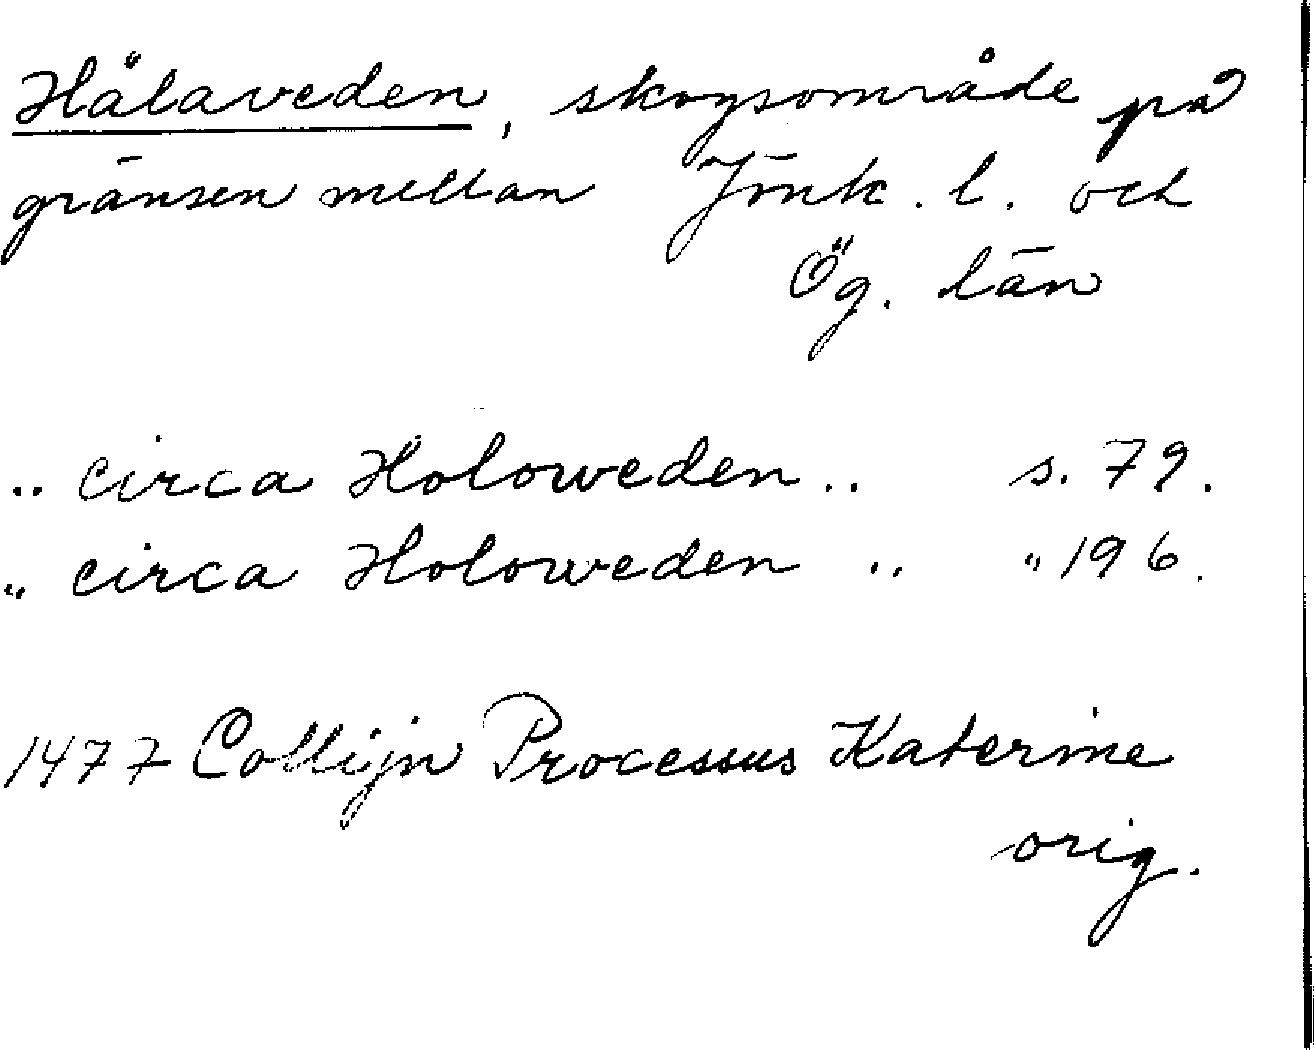 Hålaveden, skogsområde på
gränsen mellan Jönk. l. och
Ög. län
.. circa Holoweden .. s. 79.
.. circa Holoweden .. " 196.
1477 Collijn Processus Katerine
orig.